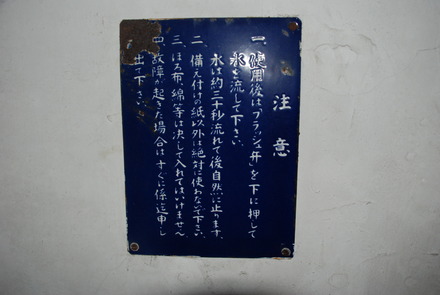 注意
一、使用後は「フラッシュ弁」を下に押して
水を流して下さい。
水は約三十秒流れて後自然に止ります。
二、備え付けの紙以外は絶対に使わないで下さい。
三、ぼろ布、綿等は決して入れてはいけません
四、故障が起きた場合はすぐに係迄申し
出て下さい。